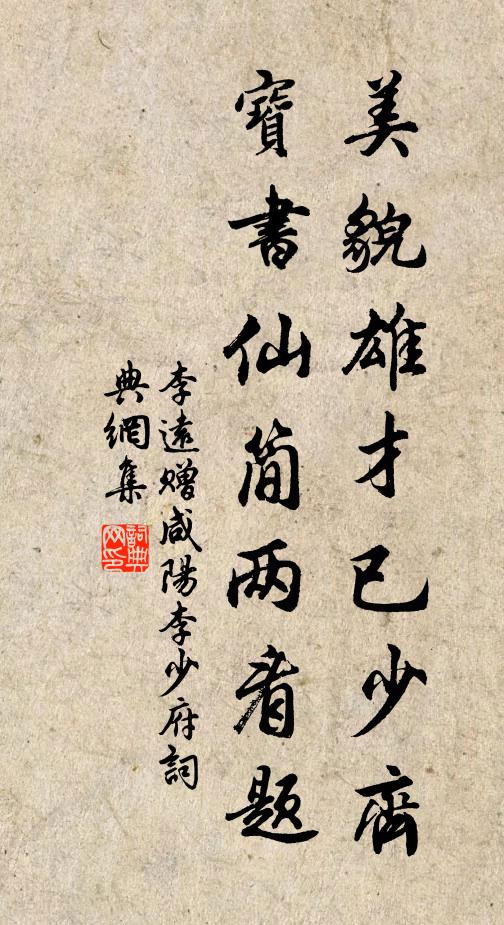 美貌雄才已少齊
寶書仙簡两看題
李遠贈咸陽李少府詞
典網集
詞典
网印